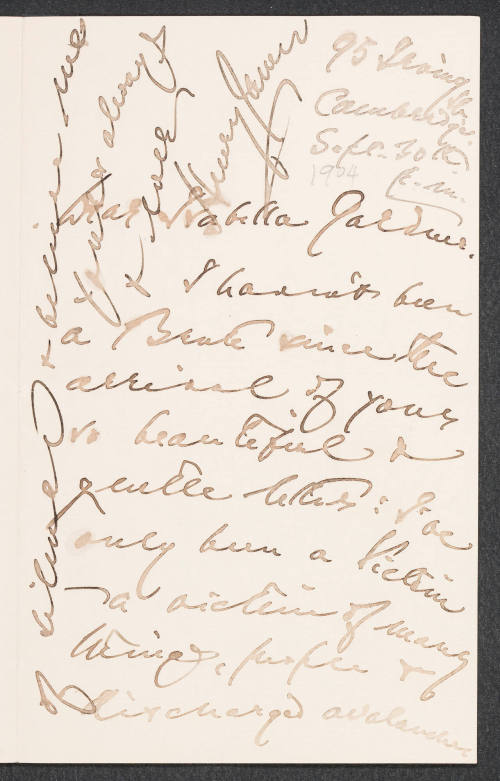 95 Irving St.
Cambridge.
Sept. 30th.
p.m.
1904
Dear Isabella Gardner.
I haven't been
a Brute since the
arrival of your
so beautiful &
gentle letter: I've
only been a Victim
—a victim of many
things, people &
discharged avalanches
of silence & believe me
yours always
& ever
Henry James